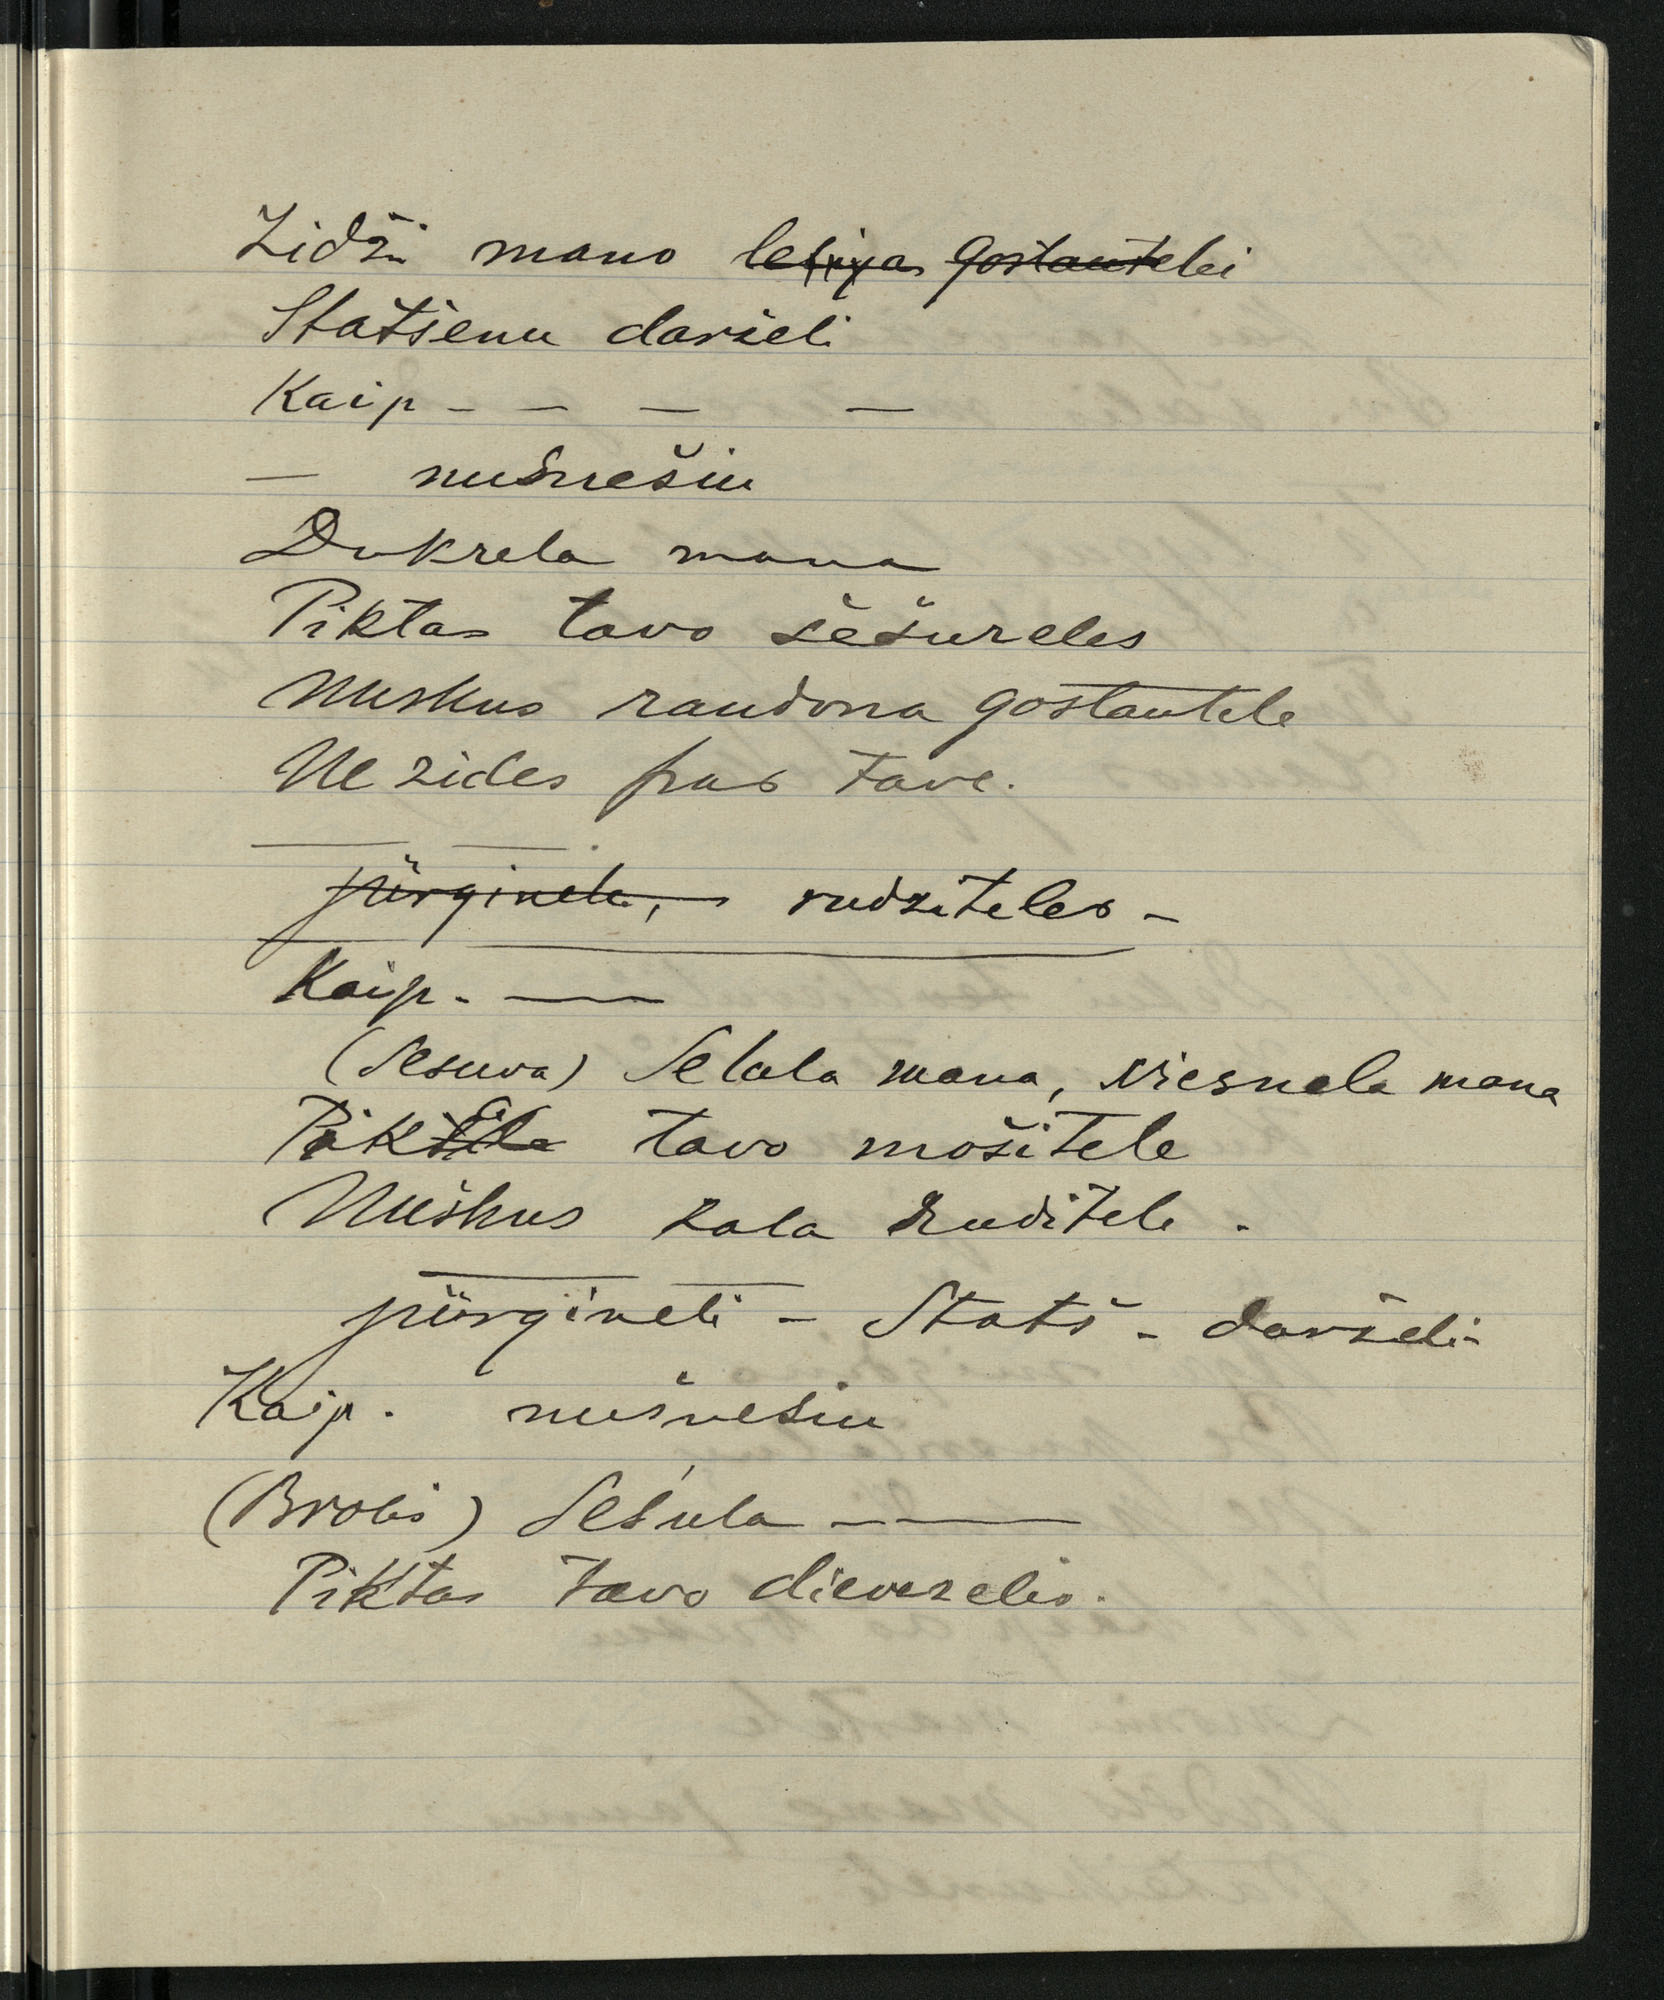 Zidži mano lelija gostautelei
Statšenu darželi
Kaip - - - -
- nušnešiu
Dukrela mana
Piktas tavo šešureles
Nuskus raudona gostautele
Ne zides pas tave.
pürginele, rudziteles -
Kaip. -
(Sesuva) Selala mana, viesnela mana
tavo mošitele
Nuškus zala ruditele .
pürgineli - Statš - darželi -
Kaip. nušnešiu
(Brolis) Sesula - - -
Piktas tavo dieverelis.